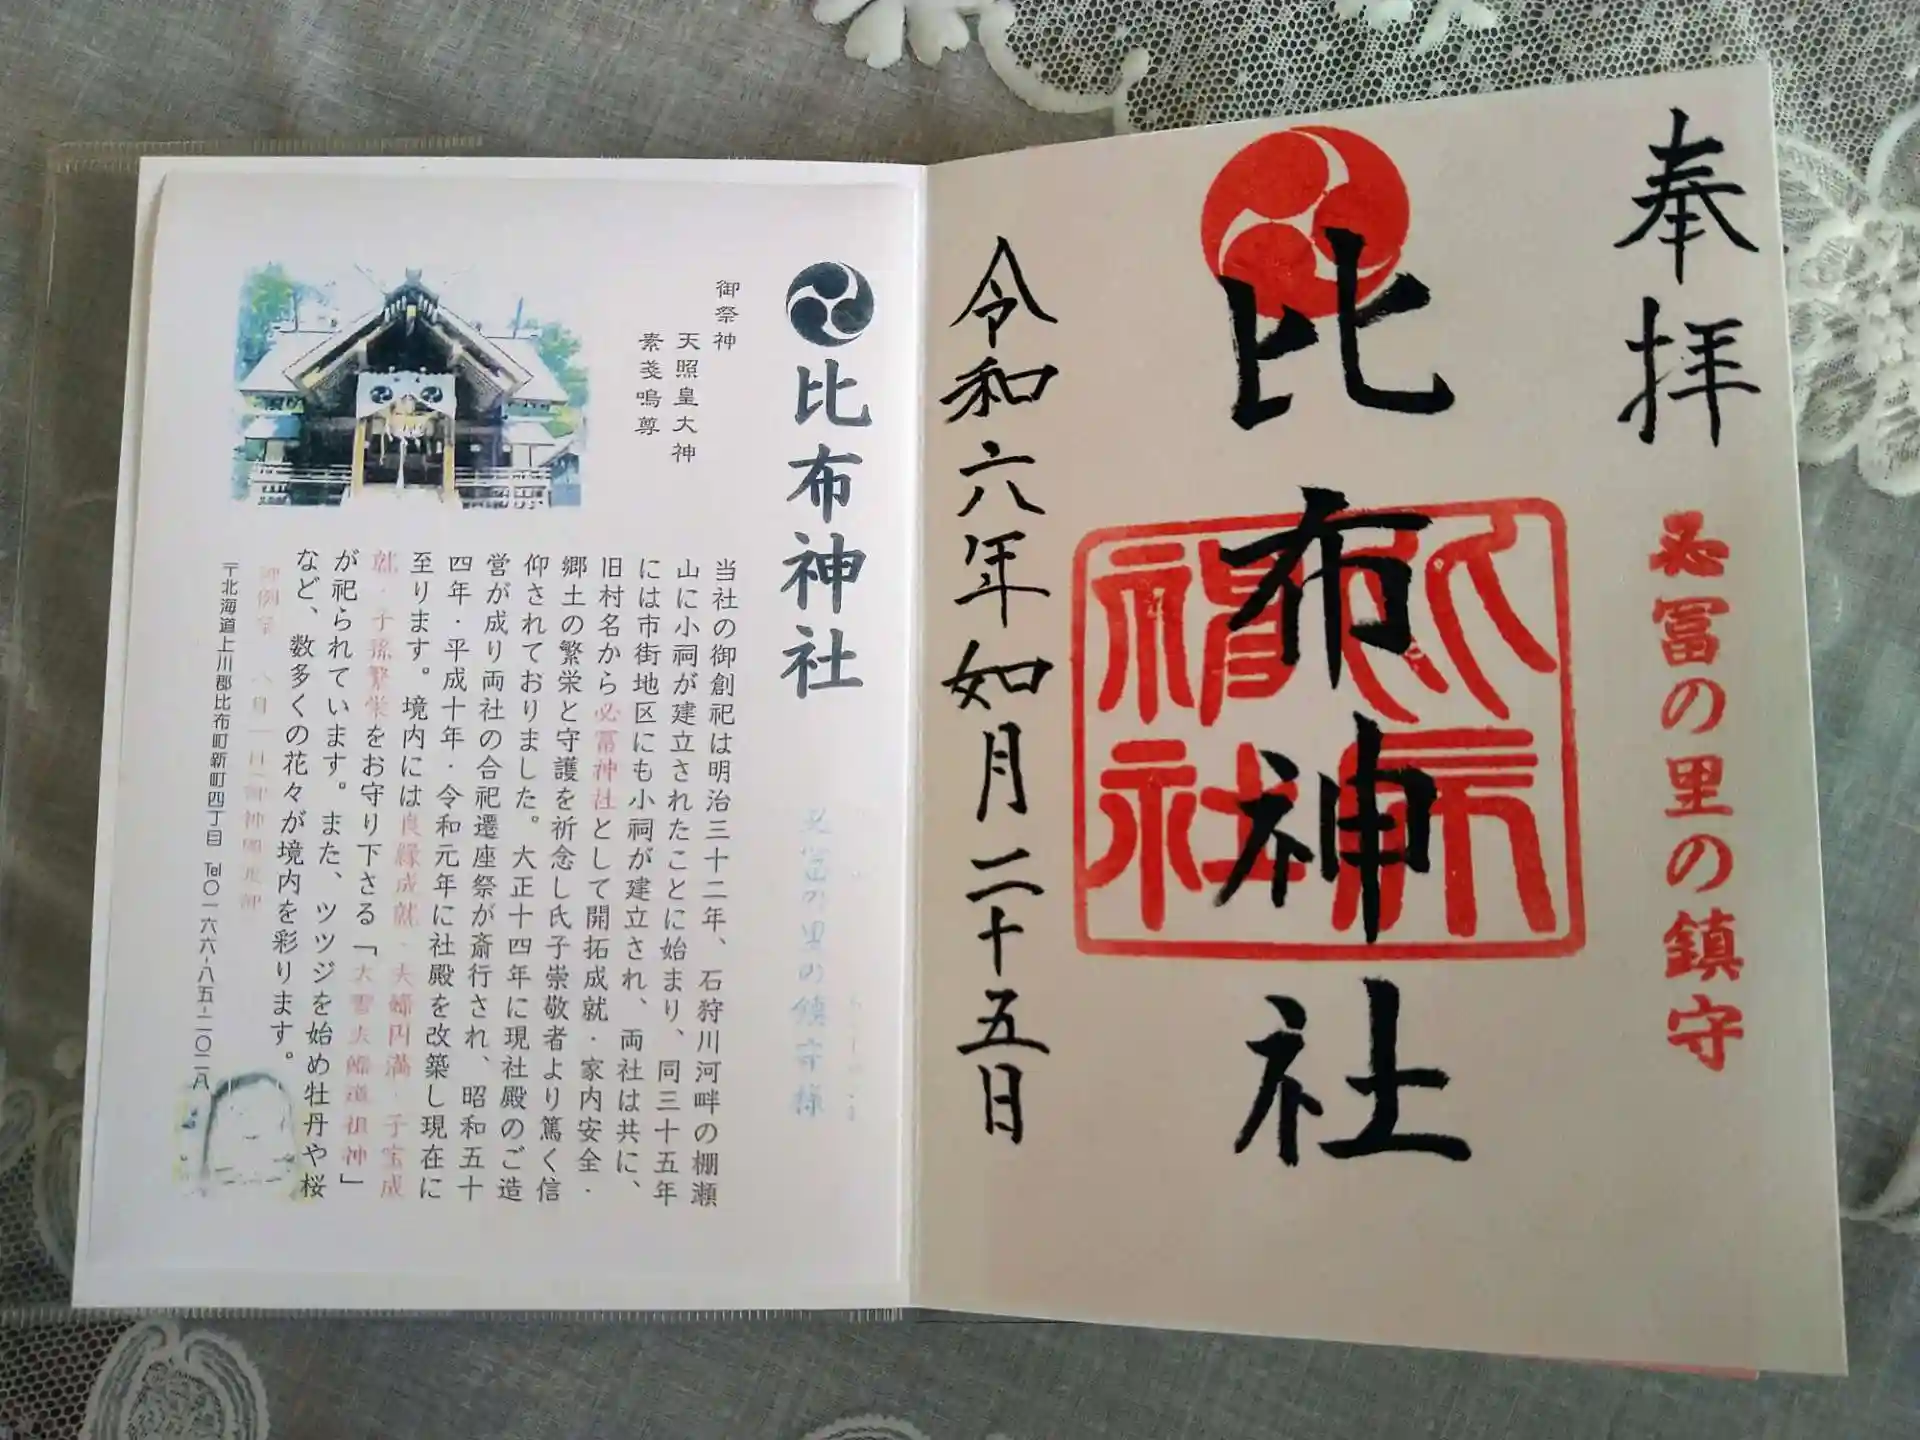 奉拝
必冨の里の鎮守
比布神社
令和六年如月二十五日
比布神社
御祭神
天照皇大神
素戔嗚尊
当社の御創祀は明治三十二年、石狩川河畔の棚瀬
山に小祠が建立されたことに始まり、同三十五年
には市街地区にも小祠が建立され、両社は共に、
旧村名から必冨神社として開拓成就・家内安全・
郷土の繁栄と守護を祈念し氏子崇敬者より篤く信
仰されておりました。大正十四年に現社殿のご造
営が成り両社の合祀遷座祭が斎行され、昭和五十
四年・平成十年・令和元年に社殿を改築し現在に
至ります。境内には良縁成就・夫婦円満・子宝成
就・子孫繁栄をお守り下さる「大雪夫婦道祖神」
が祀られています。また、ツツジを始め牡丹や桜
など、数多くの花々が境内を彩ります。
〒北海道上川郡比布町新町四丁目 Tel〇一六六-八五-二〇二八